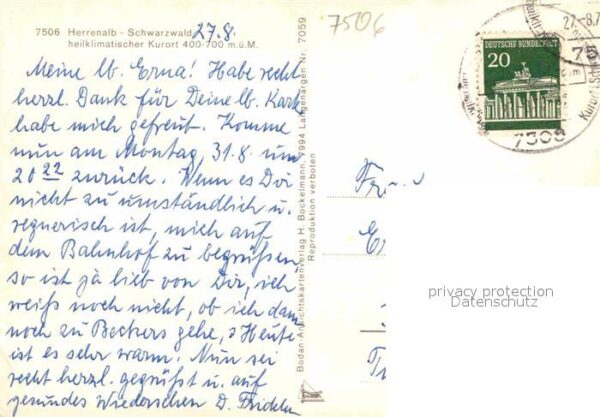 7506 Herrenalb - Schwarzwald 27.8.
heilklimatischer Kurort 400-700 m.ü.M.
Meine lb. Erna! Habe recht
herzl. Dank für Deine lb. Karte
habe mich gefreut. Komme
nun am Montag, 31.8. um
20 22 zurück. Wenn es Dir
nicht zu umständlich u.
regnerisch ist, mich auf
dem Bahnhof zu begrüßen
so ist ja lieb von Dir, ich
weiß noch nicht, ob ich dann
noch zu Beckers gehe, Heute
ist es sehr warm. Nun sei
recht herzl. gegrüßt u. auf
gesundes Wiedersehen D.
Bodan-Ansichtskartenverlag H. Bockelmann, 7994 Langenargen Nr. 7059
Reproduktion verboten
bodan
7506
DEUTSCHE BUNDESPOST
20
27.-8.7
75
7506
Kurort
privacy protection
Datenschutz